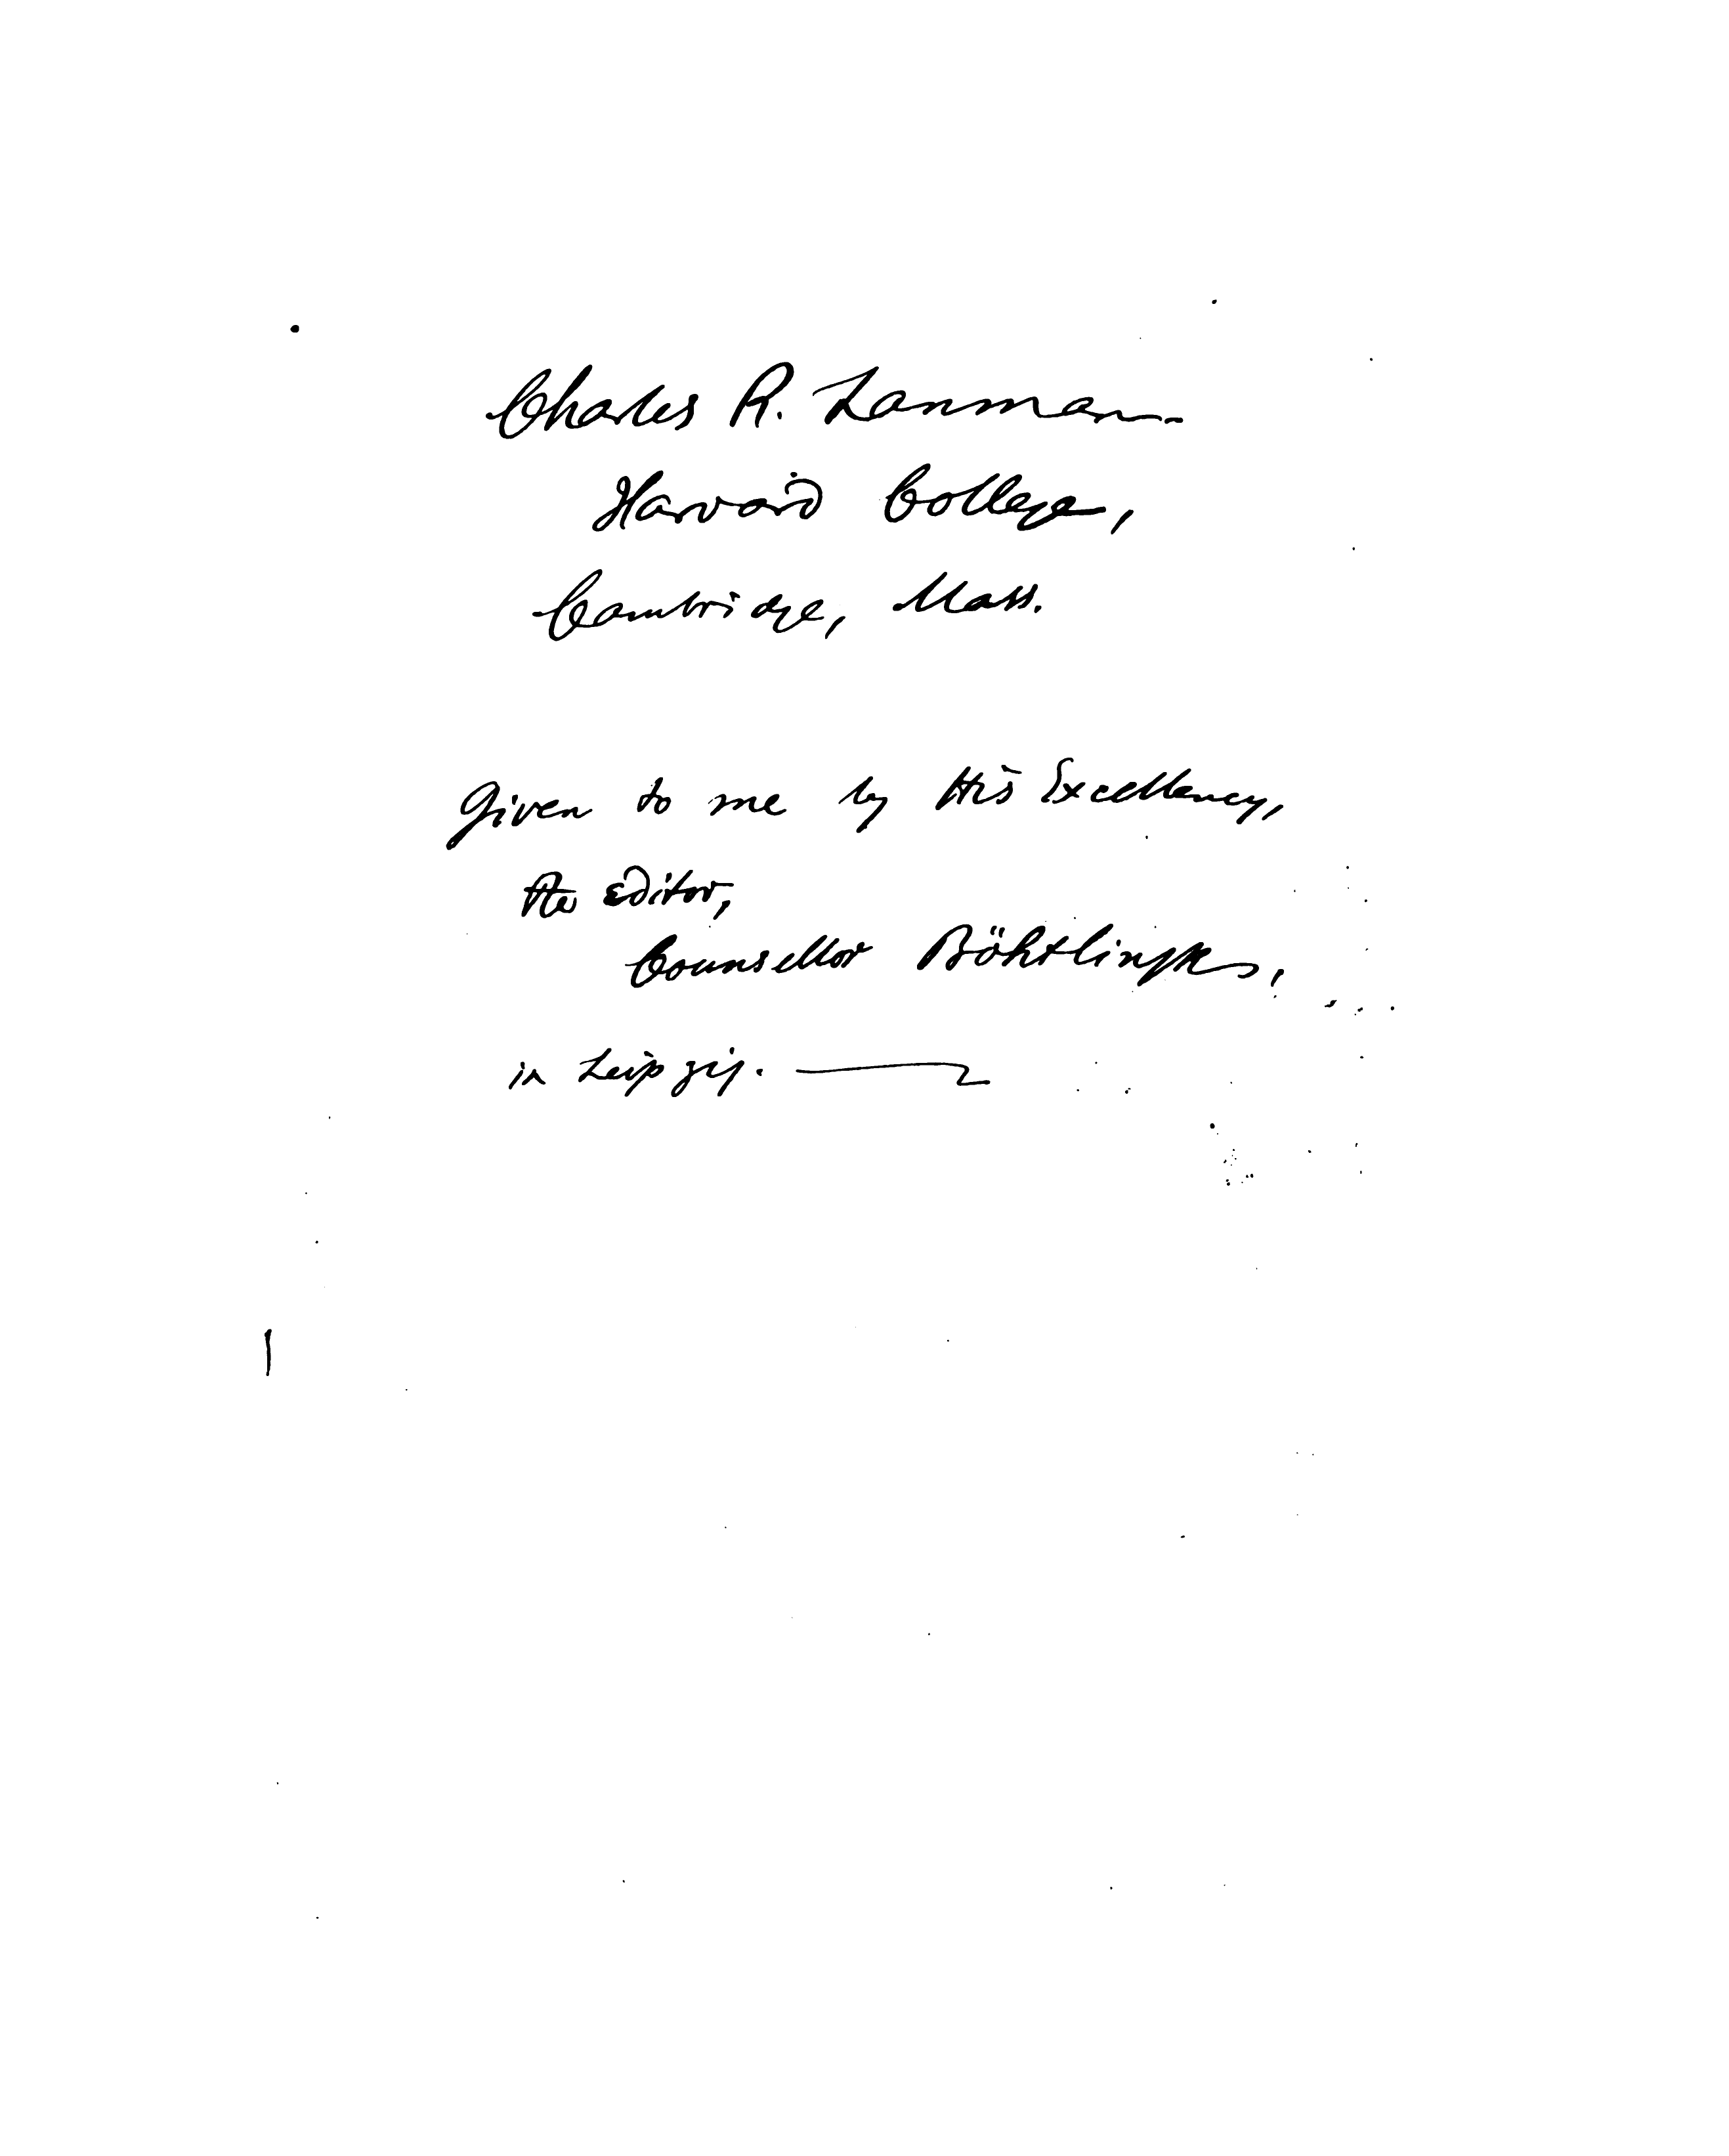 Charles R. Lanman
Harvard College,
Cambridge, Mass.
Given to me by His Excellency,
the editor,
Counsellor Böhtlingk,
in Leipzig.